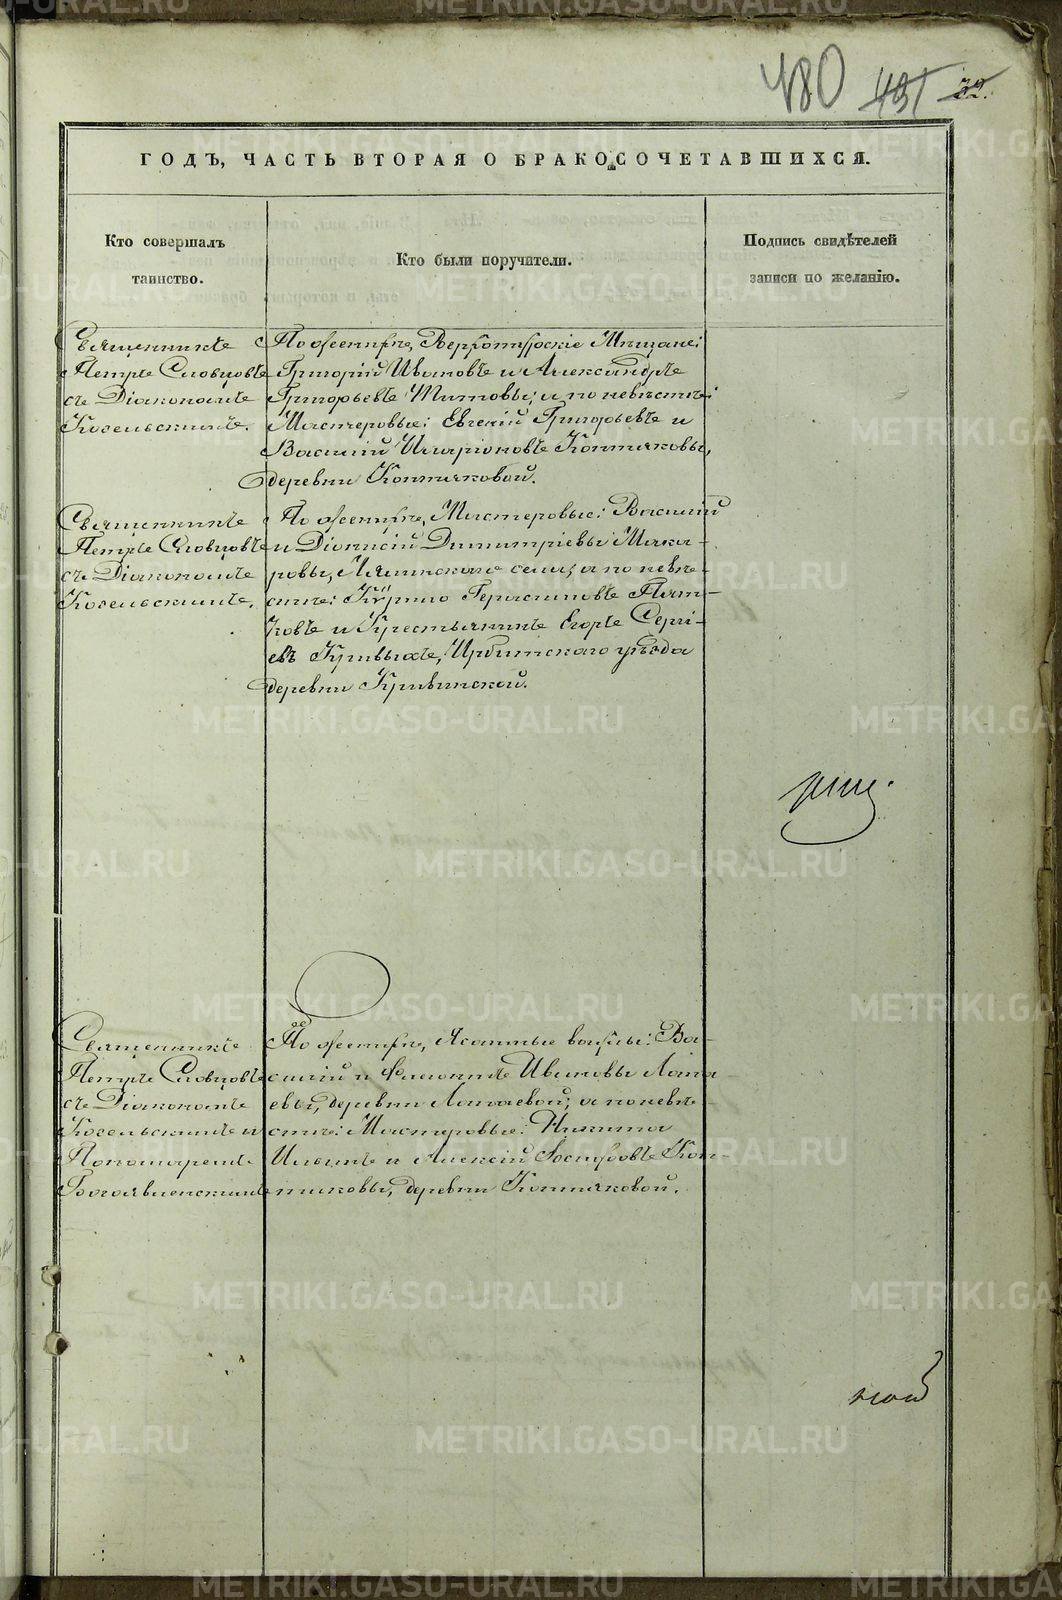 480 491 32.
ГОДЪ, ЧАСТЬ ВТОРАЯ О БРАКОСОЧЕТАВШИХСЯ.
Кто совершалъ
таинство.
Кто были поручители.
Подпись свидѣтелей
записи по желанію.
Священникъ
Петръ Словцовъ
съ Діакономъ
Козельскимъ.
По женихѣ, Верхотурскіе Мѣщане:
Григорій Ивановъ и Александръ
Григорьевъ Титовы; а по невѣстѣ:
Мастеровые: Евгеній Григорьевъ и
Василий Иларіоновъ Коптяковы,
деревни Коптяковой.
Священникъ
Петръ Словцовъ
съ Діакономъ
Козельскимъ.
По женихѣ, Мастеровые: Василій
и Діонисій Димитріевы Мака-
ровы, села; а по невѣ-
стѣ: Герасимовъ Пят-
ковъ и Крестьянинъ Егоръ Сергі-
евъ Кривыхъ, Ирбитскаго уѣзда
деревни Кривинской.
Священникъ
Петръ Словцовъ
съ Діакономъ
Козельскимъ и
Пономаремъ
Богоявленскимъ
По женихѣ, Ясашные вогулы: Ва-
силій и Филиппъ Ивановы Лата-
евы, деревни Латаевой; а по невѣ-
стѣ: Мастеровые: Никита
Ильинъ и Алексій Коп-
тяковы, деревни Коптяковой.
METRIKI.GASO-URAL.RU